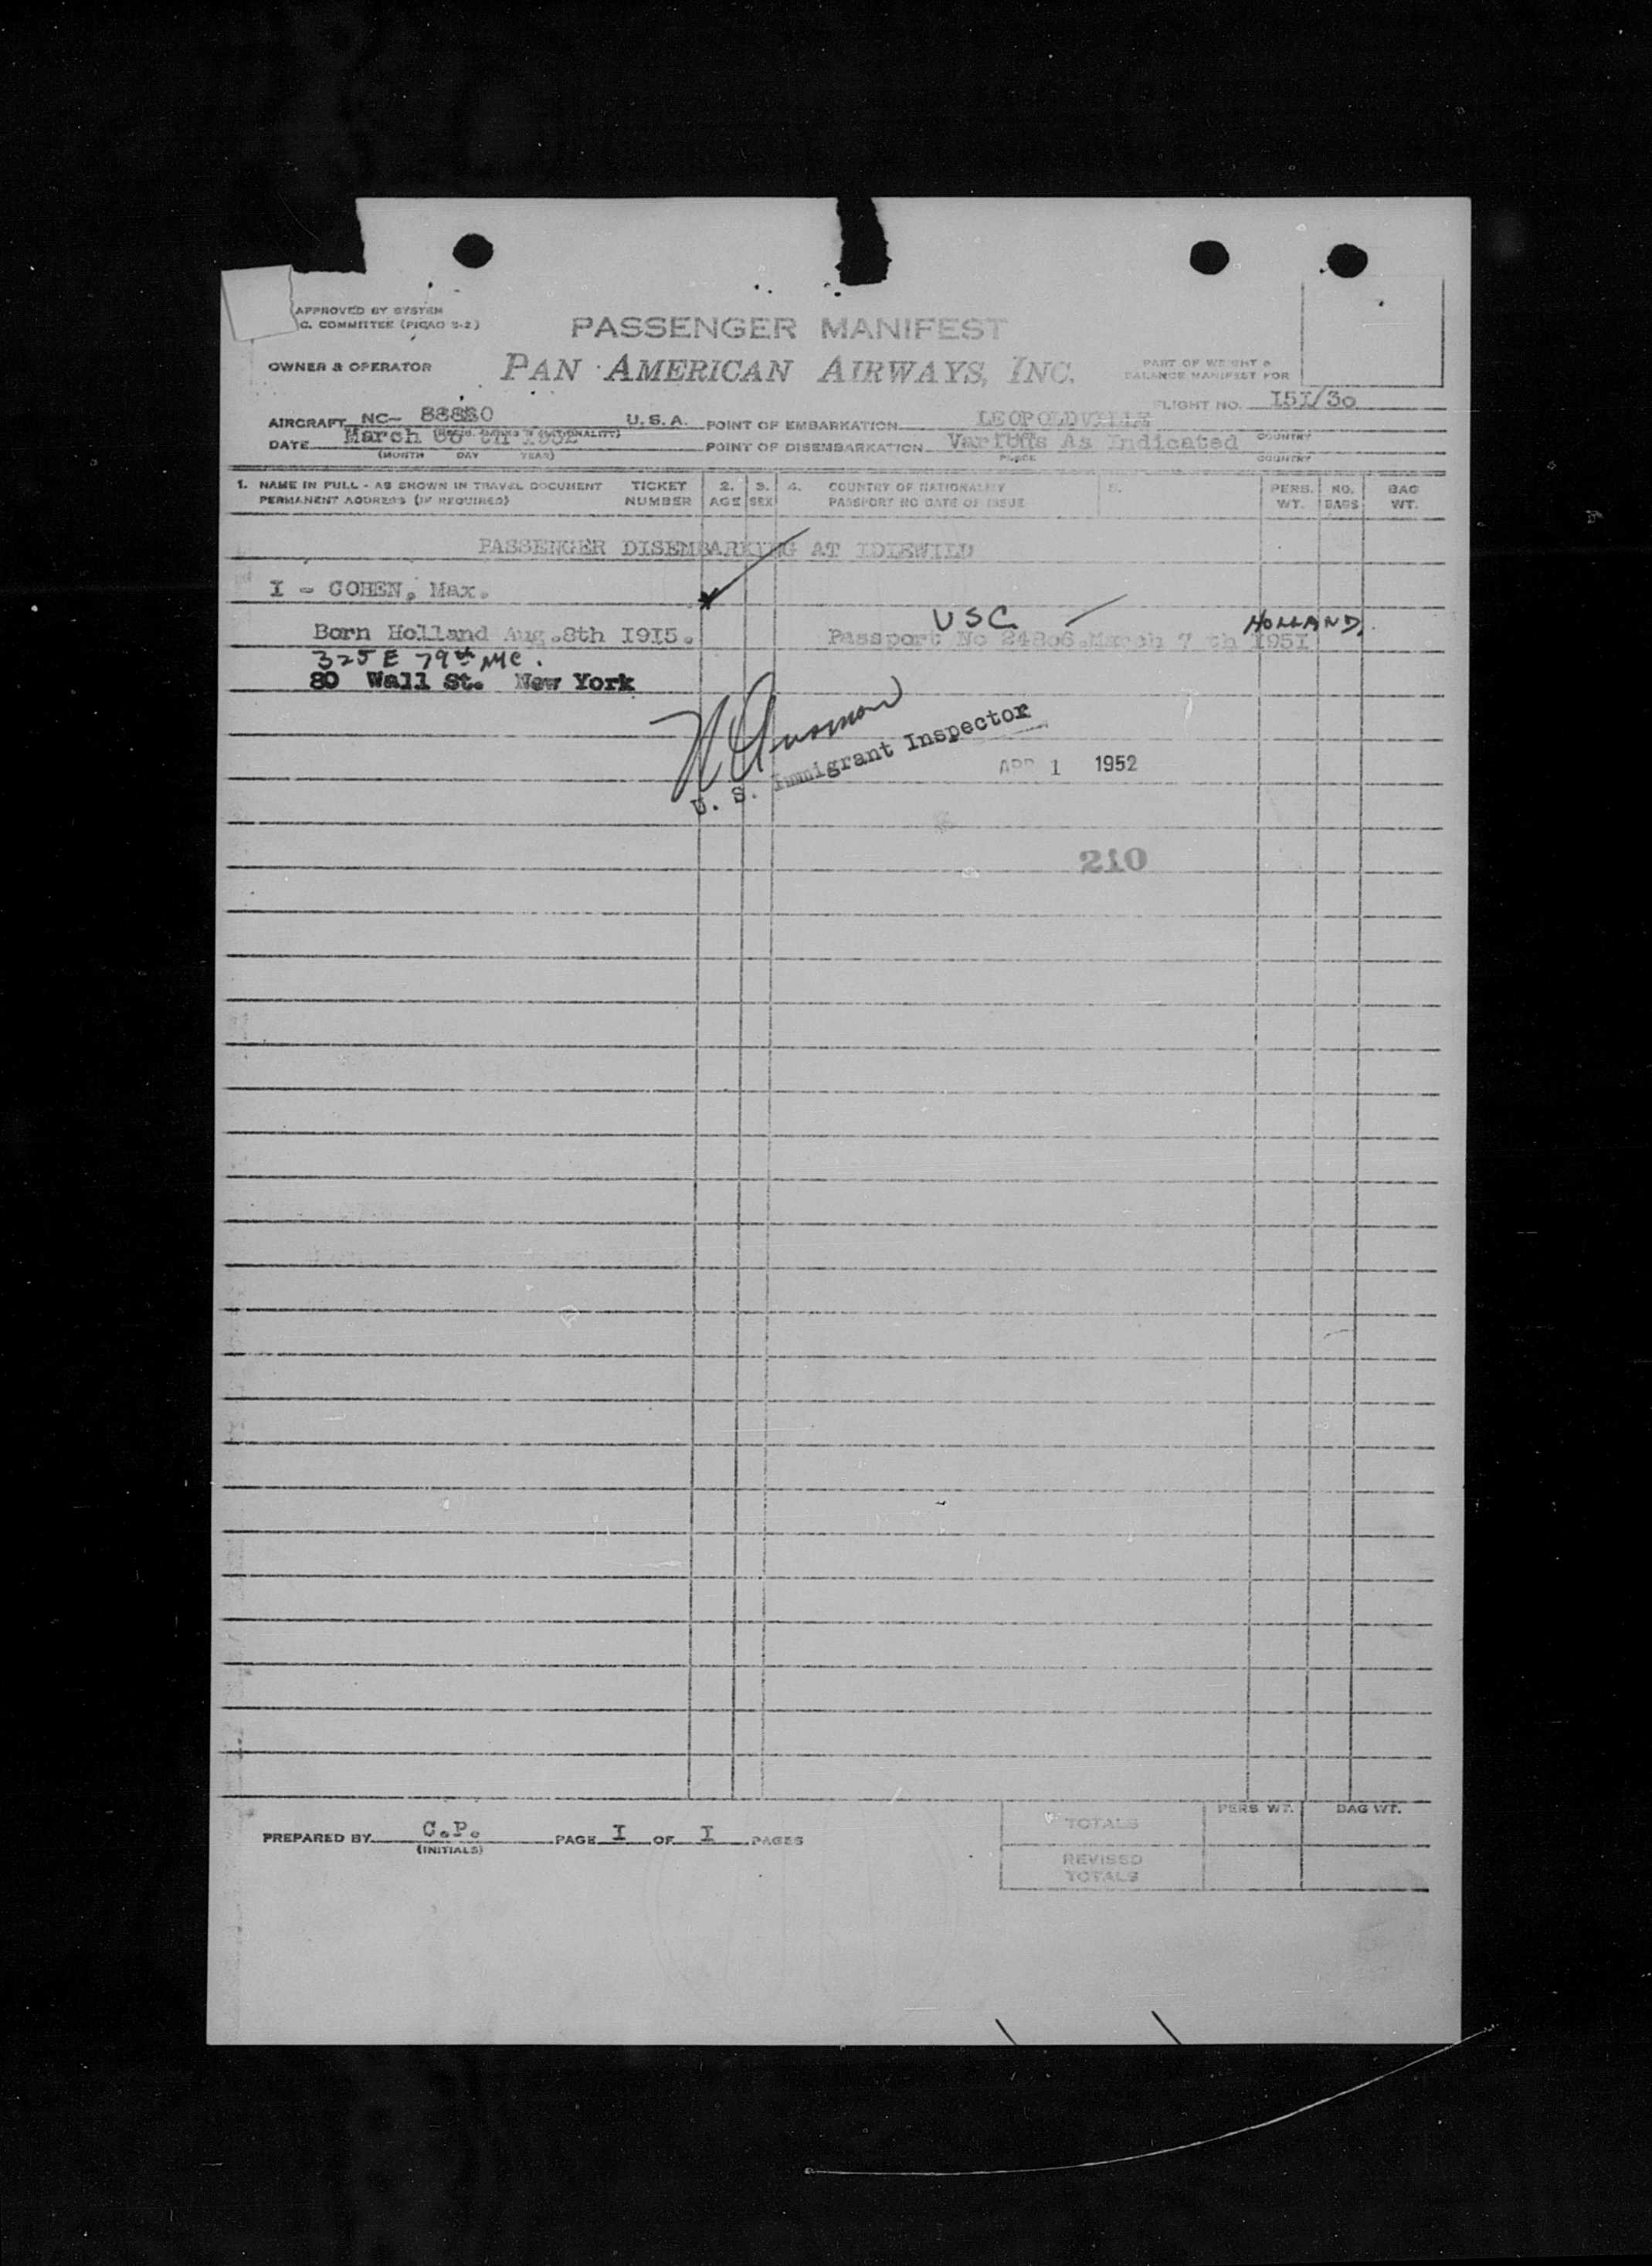 APPROVED BY SYSTEM
C. COMMITTEE (PICAO S-2)
PASSENGER MANIFEST
OWNER & OPERATOR PAN AMERICAN AIRWAYS, INC. PART OF WEIGHT &
BALANCE MANIFEST FOR
FLIGHT NO. I5I/3o
AIRCRAFT NC- U.S.A. POINT OF EMBARKATION LEOPOLDVILLE
DATE March th 1952 POINT OF DISEMBARKATION Various As Indicated COUNTRY
(MONTH DAY YEAR) PLACE COUNTRY
1. NAME IN FULL - AS SHOWN IN TRAVEL DOCUMENT TICKET 2. 3. 4. COUNTRY OF NATIONALITY 5. PERS. NO. BAG
PERMANENT ADDRESS (IF REQUIRED) NUMBER AGE SEX PASSPORT NO DATE OF ISSUE WT. BAGS WT.
PASSENGER DISEMBARKING AT IDLEWILD
I - COHEN, Max.
USC HOLLAND.
Born Holland Aug.8th I9I5. Passport No 248o6.March 7 th I95I
325 E 79th NYC.
80 Wall St. New York
U. S. Immigrant Inspector
APR 1 1952
210
PREPARED BY C.P. PAGE I OF I PAGES
(INITIALS)
TOTALS PERS WT. BAG WT.
REVISED
TOTALS